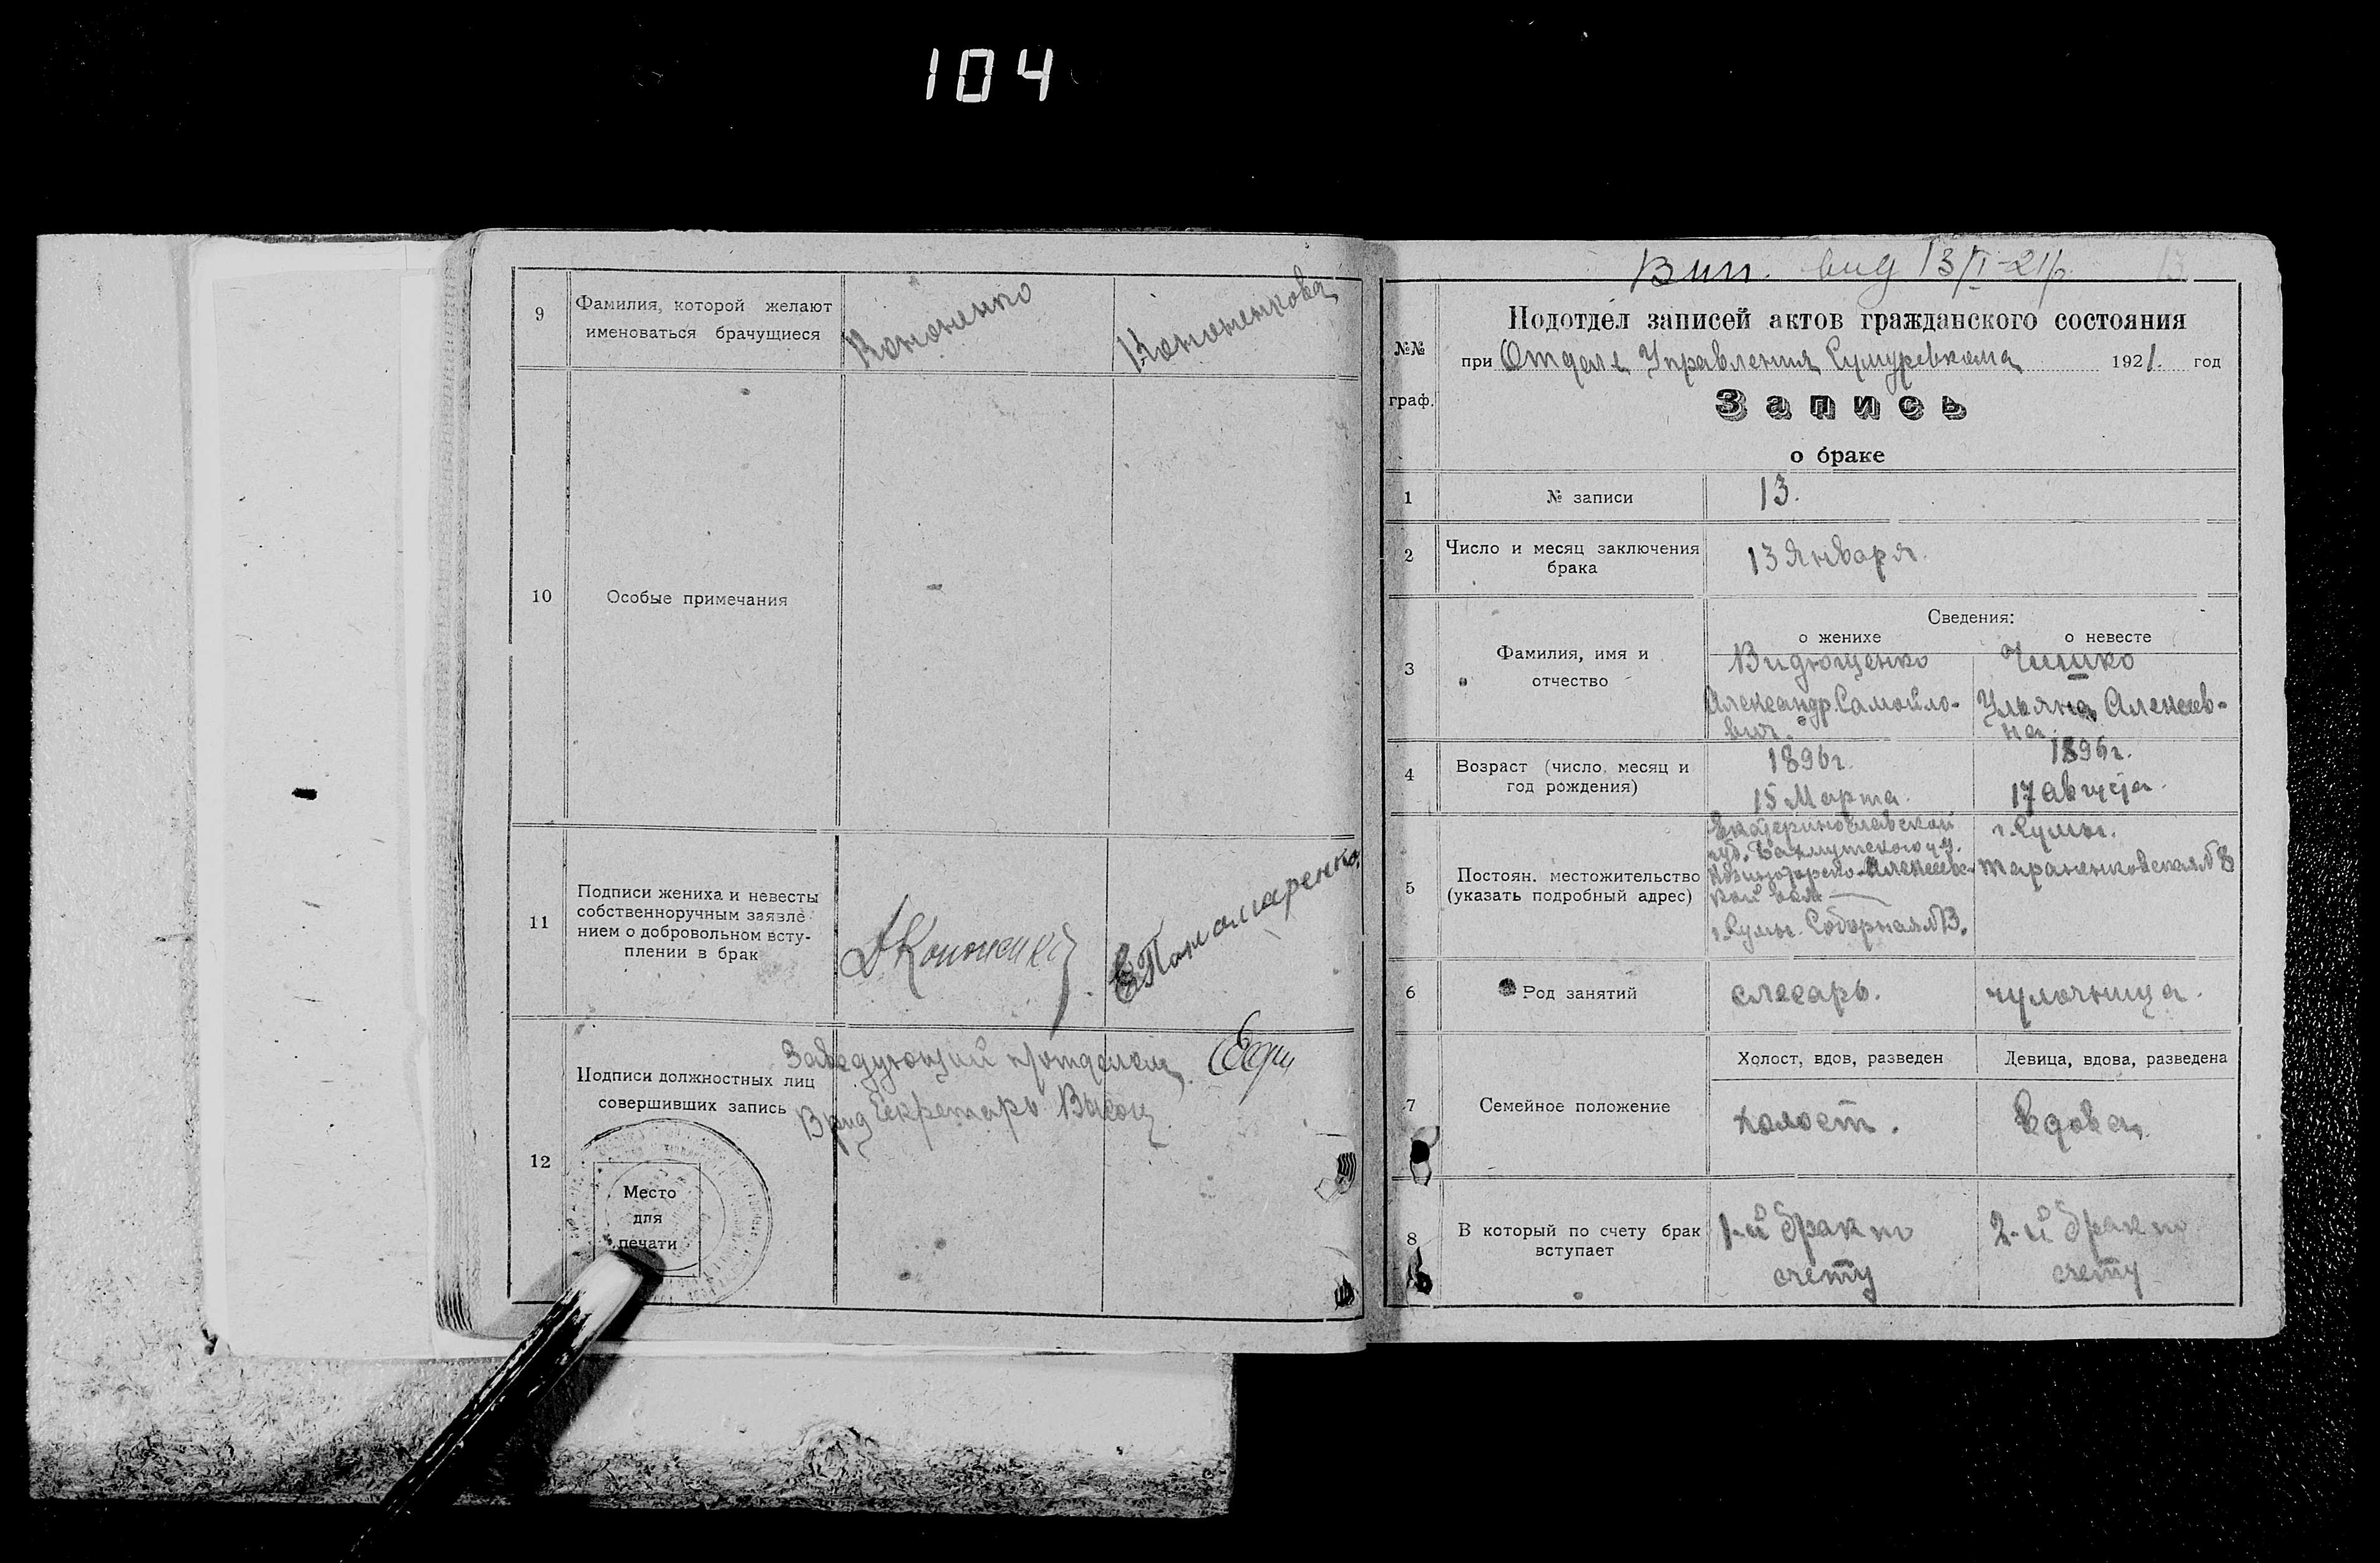 104
9
Фамилия, которой желают
именоваться брачущиеся
Кононенко
Кононенкова
10
Особые примечания
11
Подписи жениха и невесты
собственноручным заявле-
нием о добровольном всту-
плении в брак
Кононенко
ЕПономаренко
12
Подписи должностных лиц
совершивших запись
Заведующий
Врид Секретарь
Место
для
печати
Вип. вид 13/I-21р.
№№
граф.
Подотдел записей актов гражданского состояния
при Отделе Управления Сумуревкома 1921. год
Запись
о браке
1
№ записи
13.
2
Число и месяц заключения
брака
13 Января.
Сведения:
о женихе
о невесте
3
Фамилия, имя и
отчество
Видющенко
Александр Самойло-
вич.
Чишко
Ульяна Алексеев-
на
4
Возраст (число, месяц и
год рождения)
1896г.
15 Марта.
1896г.
17 августа.
5
Постоян. местожительство
(указать подробный адрес)
Екатеринославской
губ. Бахмутского у.
Алексеев-
кой вол.
г. Сумы. Соборная
г. Сумы.
Тараненковская № 8
6
Род занятий
слесарь.
чулочница.
7
Семейное положение
Холост, вдов, разведен
Девица, вдова, разведена
холост.
вдова
8
В который по счету брак
вступает
1-й брак по
счету
2-й брак по
счету